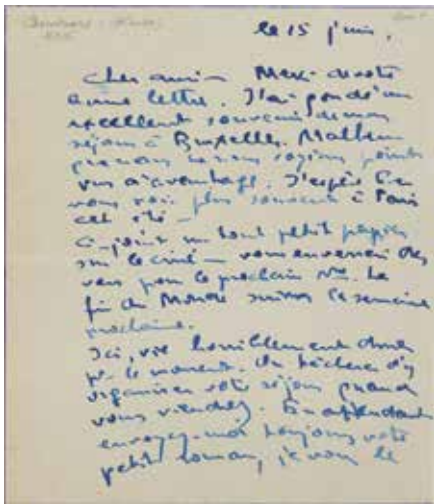 le 15 juin.
Cher ami — Merci de votre
bonne lettre. J'ai gardé un
excellent souvenir de mon
séjour à Bruxelles. Malheu
nous ne nous soyons point
vus davantage. J'espère bien
vous voir plus souvent à Paris
cet été —
Ci-joint un tout petit papier
sur le ciné — vous enverrai des
vers pour le prochain No. La
fin du Monde suivra la semaine
prochaine.
Ici, vie horriblement
pr le moment. On tâchera d'y
organiser votre séjour quand
vous viendrez. En attendant
envoyez-moi toujours votre
petit roman, je vous le